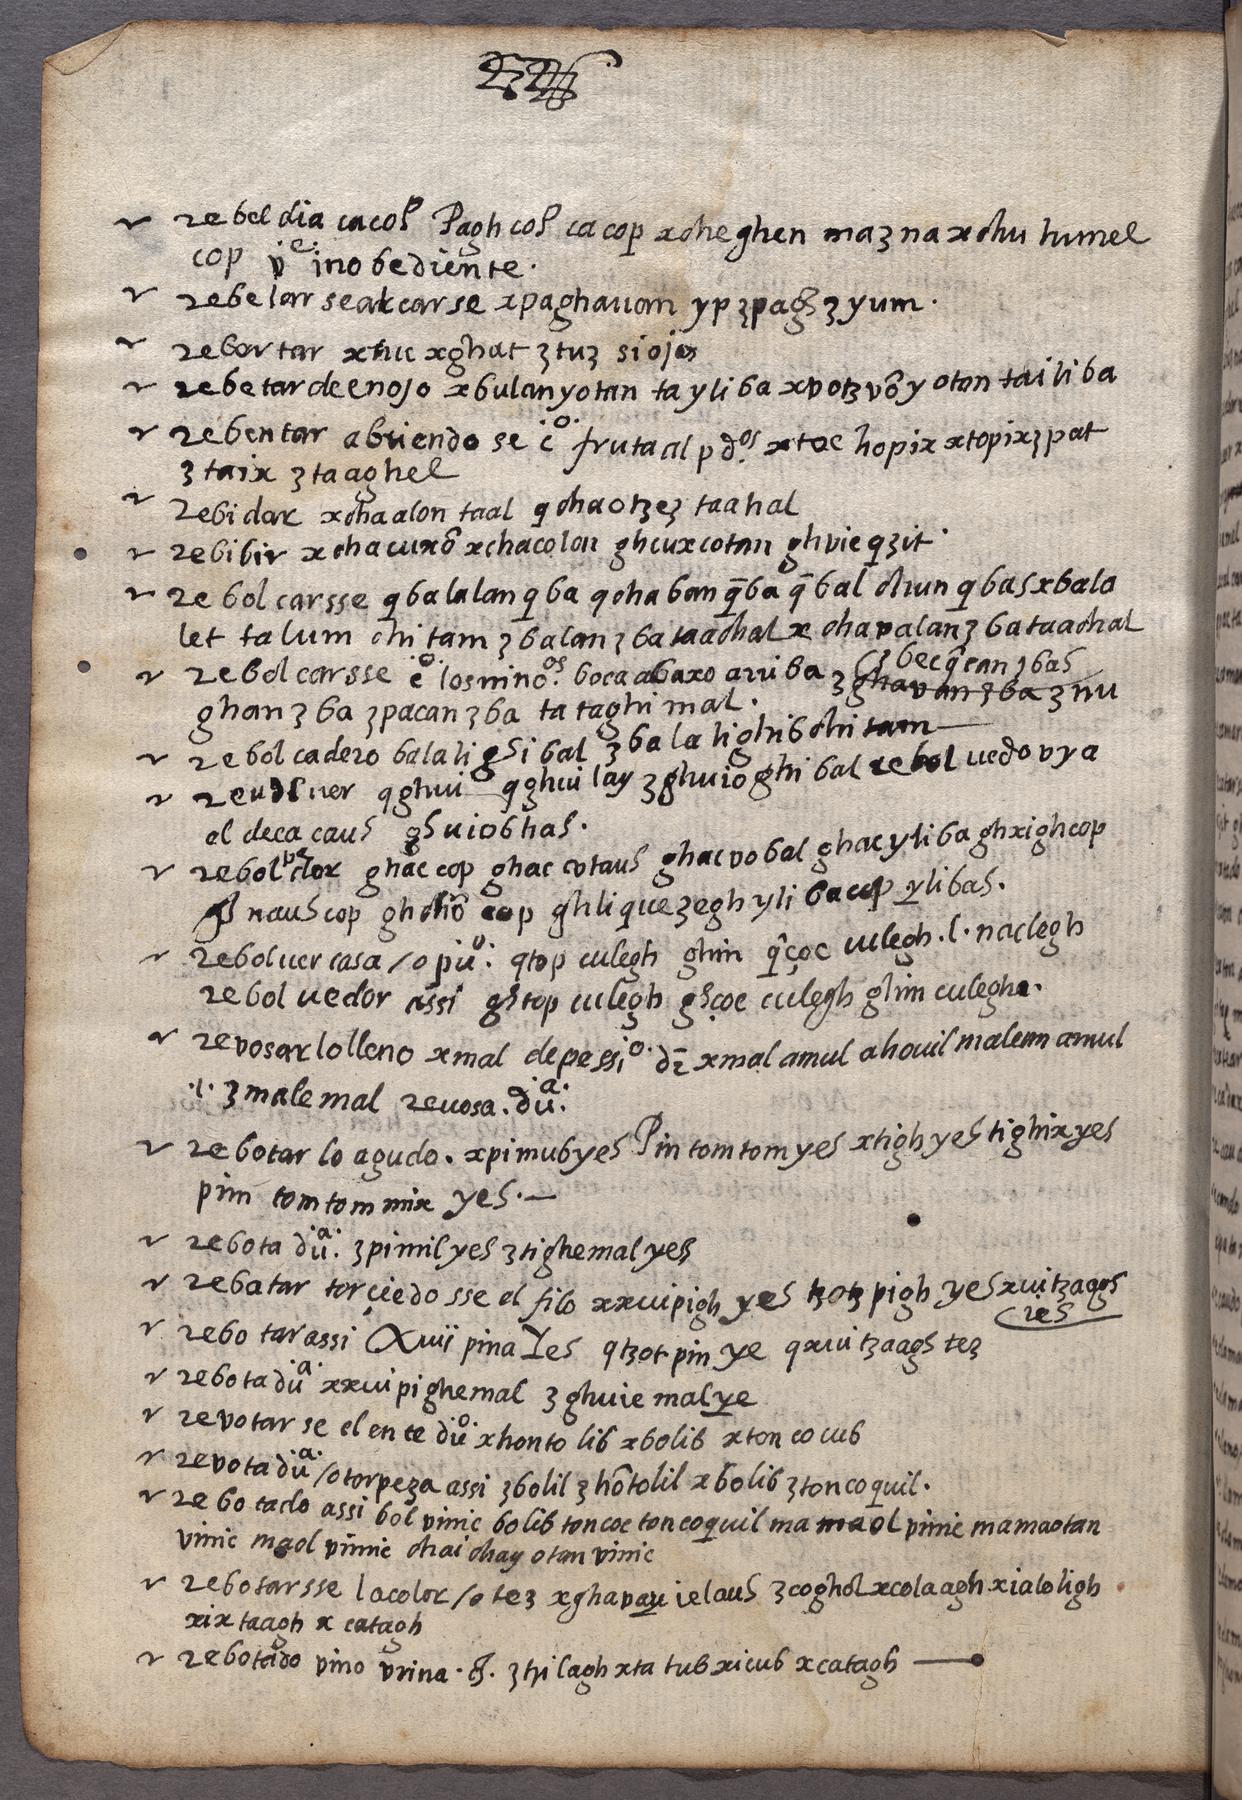 rebeldia cacop Pagh cop cacop xcheghen maz na xchu humel
cop vͤ inobediente.
rebelar se alcarse xpaghauan yp ʒpagh ʒyum.
rebentar xtuc xghat ʒtuʒ si ojos
rebetar de enojo xbulan yotan ta yliba xvotz vō yotan tai liba
rebentar abriendo se c͛ᵒ fruta al p dᵒˢ xtoc hopix xtopix ʒpat
ʒtaix ʒtaaghel
rebidar xcha alon taal qchaotzeʒ taahal
rebibir xcha cuxō xchacolon ghcuxcotan ghvieqʒit.
rebolcarsse qbalalan qba qcha ban q̄ba q̄bal chun qbas xbala
let ta lum chitam ʒbalan ʒba taachal x cha palan ʒba taachal
rebolcarsse c͛ᵒ los ninoᵒˢ boca abaxo arriba ʒ becq̂can ʒbas ʒnu
ghan ʒba ʒpacan ʒba ta taghimal.
rebolcadero balaligh ibal ʒbalalighib chitam
reuoluer qghui qghui lay ʒghuioghibal reboluedo vya
el de cacaus ghuiobhas.
reboluedor ghac cop ghac cotaus ghacvobal ghacyliba ghxighcop
naus cop ghchiō cop ghliqueʒegh yli bacop ylibas.
reboluer casa /o puᵒ: qtop culegh ghin q̂çoc culegh .l. naclegh
reboluedor assi ghtop culegh ghçoc culegh ghin culeghe.
revosar lo lleno xmal de pessiᵒ. dr̄ xmal amul ahouil malemn amul
.l. ʒmalemal reuosa.duᵃ.
rebotar lo agudo. xpimub yes Pin tomtom yes xtigh yes tighix yes
pim tomtom mix yes.
rebota duᵃ. ʒpimil yes ʒtighemal yes
rebatar torçiedo sse el filo xxuipigh yes tzotzpigh yes xuitzaags
res
rebotar assi Xuii pina Yes qtzot pin ye qxuitzaags teʒ
rebota duᵃ xxuipighemal ʒghuie mal ye
revotar se el ente duᵒ xhonto lib xbolib xtoncocub
revota duᵃ /o torpeza assi ʒbolil ʒhōtolil xbolib ʒtoncoquil.
rebotado assi bol vinic bolib toncoc toncoquil ma maol vinic mamaotan
vinic maol vinnic chai chay otan vinic
rebotarsse la color /o teʒ xghavau ielaus ʒcoghol xcolaagh xialoligh
xix taagh x catagh
rebotado vino vrina .&. ʒthilagh xta tub xicub xcatagh